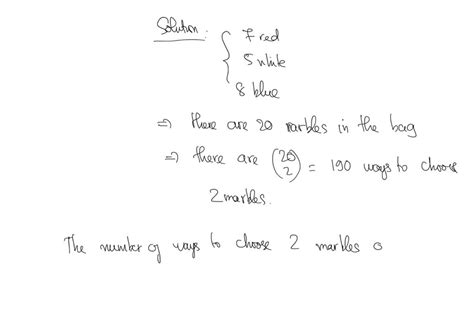 Solution:
7 red
5 white
8 blue
⇒ there are 20 marbles in the bag
⇒ there are (20 2) = 190 ways to choose
2 marbles.
The number of ways to choose 2 marbles o